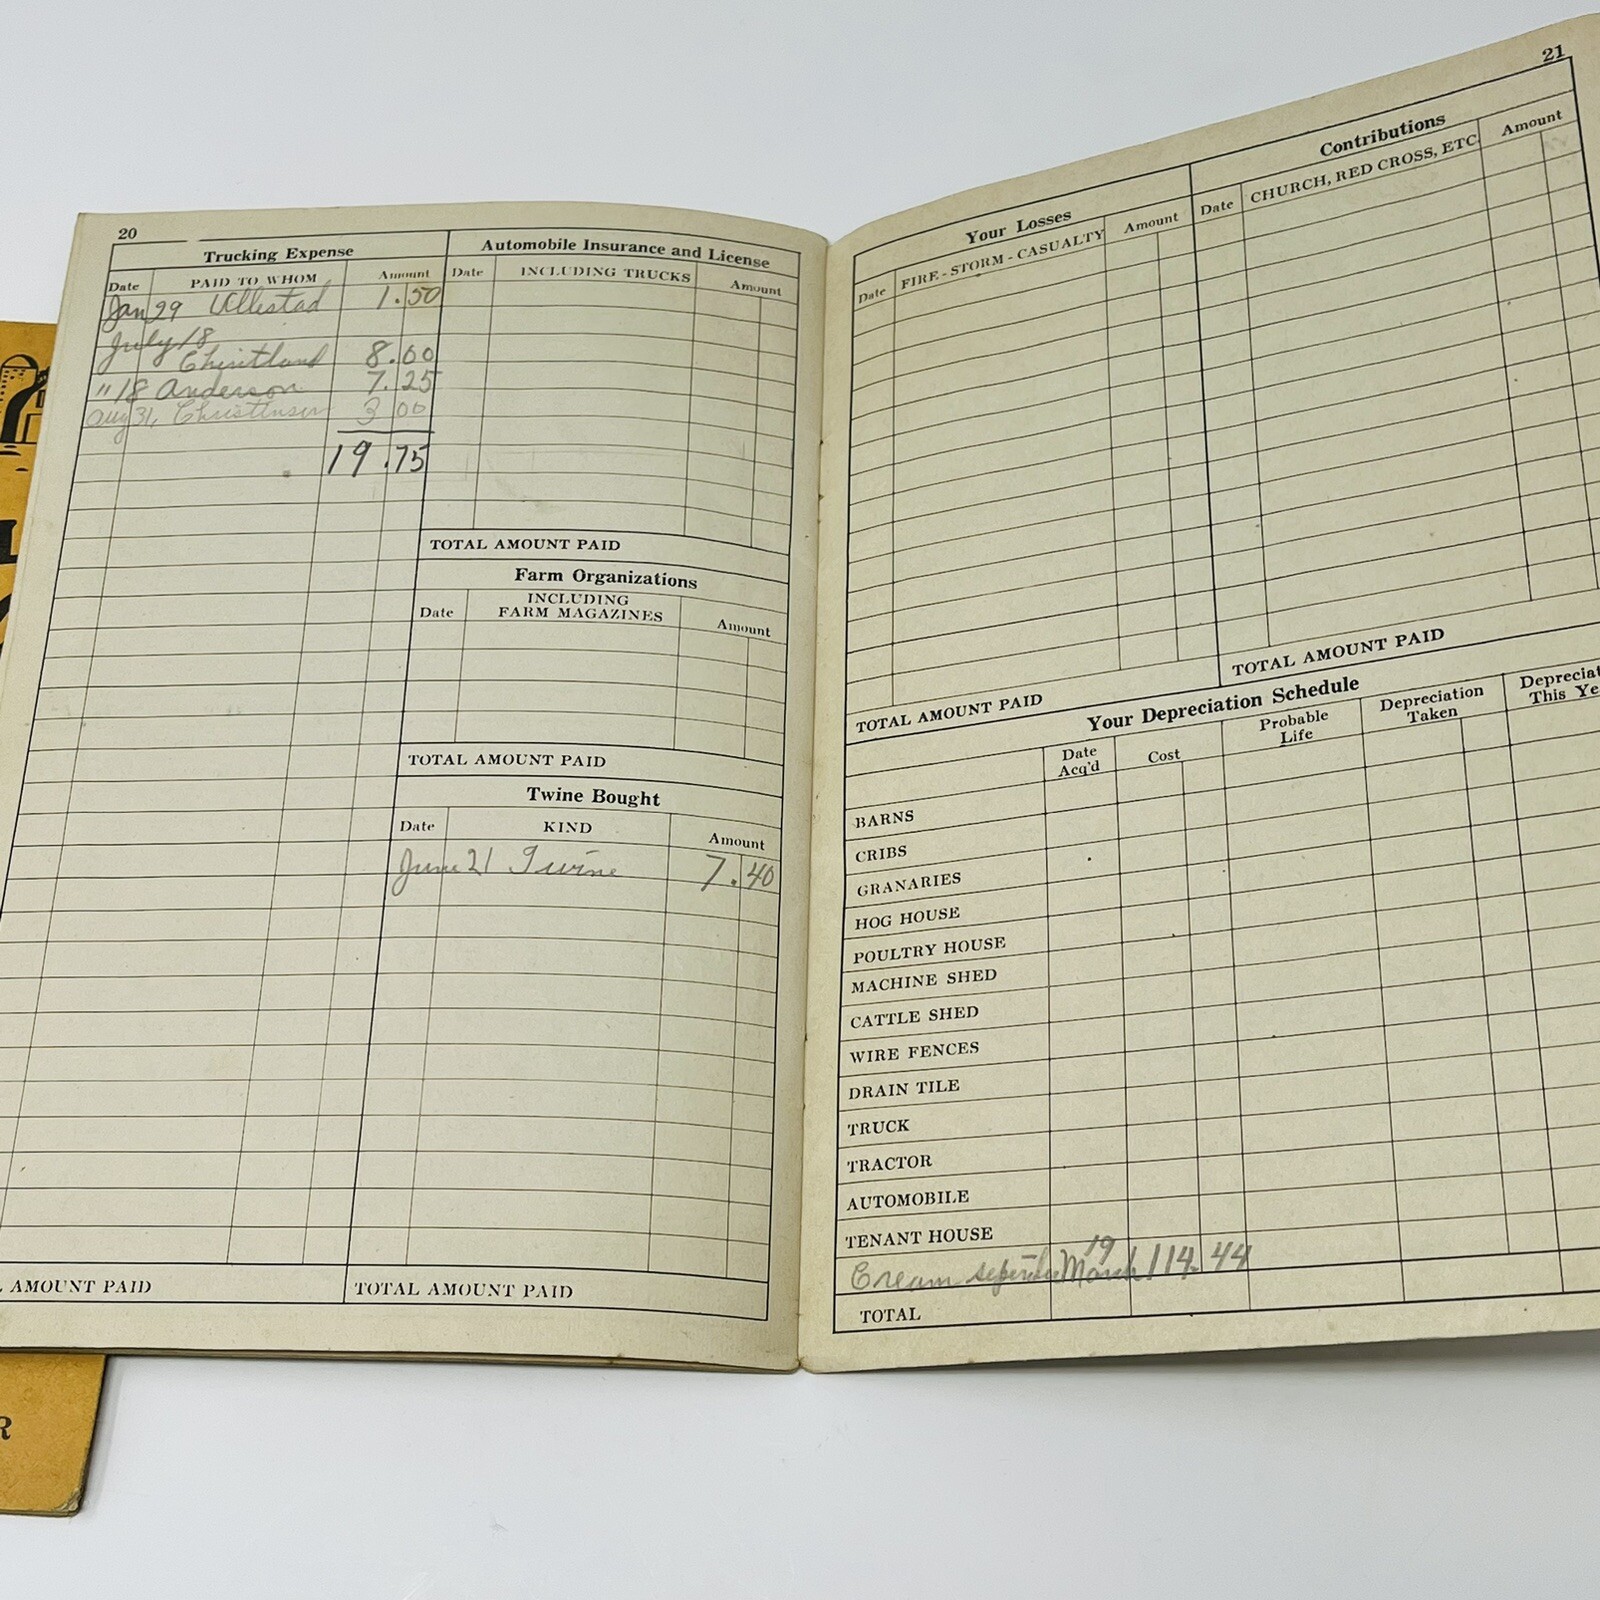 20
Trucking Expense
Date PAID TO WHOM Amount
Jan 29 Ullestad 1.50
July 18
8.00
" 18 Anderson 7.25
Aug 31, Christensen 3 00
19.75
L AMOUNT PAID
Automobile Insurance and License
Date INCLUDING TRUCKS Amount
TOTAL AMOUNT PAID
Farm Organizations
Date INCLUDING FARM MAGAZINES Amount
TOTAL AMOUNT PAID
Twine Bought
Date KIND Amount
June 21 Twine 7.40
TOTAL AMOUNT PAID
21
Your Losses
Date FIRE - STORM - CASUALTY Amount
TOTAL AMOUNT PAID
Contributions
Date CHURCH, RED CROSS, ETC. Amount
TOTAL AMOUNT PAID
Your Depreciation Schedule
Date Acq'd Cost Probable Life Depreciation Taken Depreciat This Ye
BARNS
CRIBS
GRANARIES
HOG HOUSE
POULTRY HOUSE
MACHINE SHED
CATTLE SHED
WIRE FENCES
DRAIN TILE
TRUCK
TRACTOR
AUTOMOBILE
TENANT HOUSE
Cream March 19 114.44
TOTAL
R